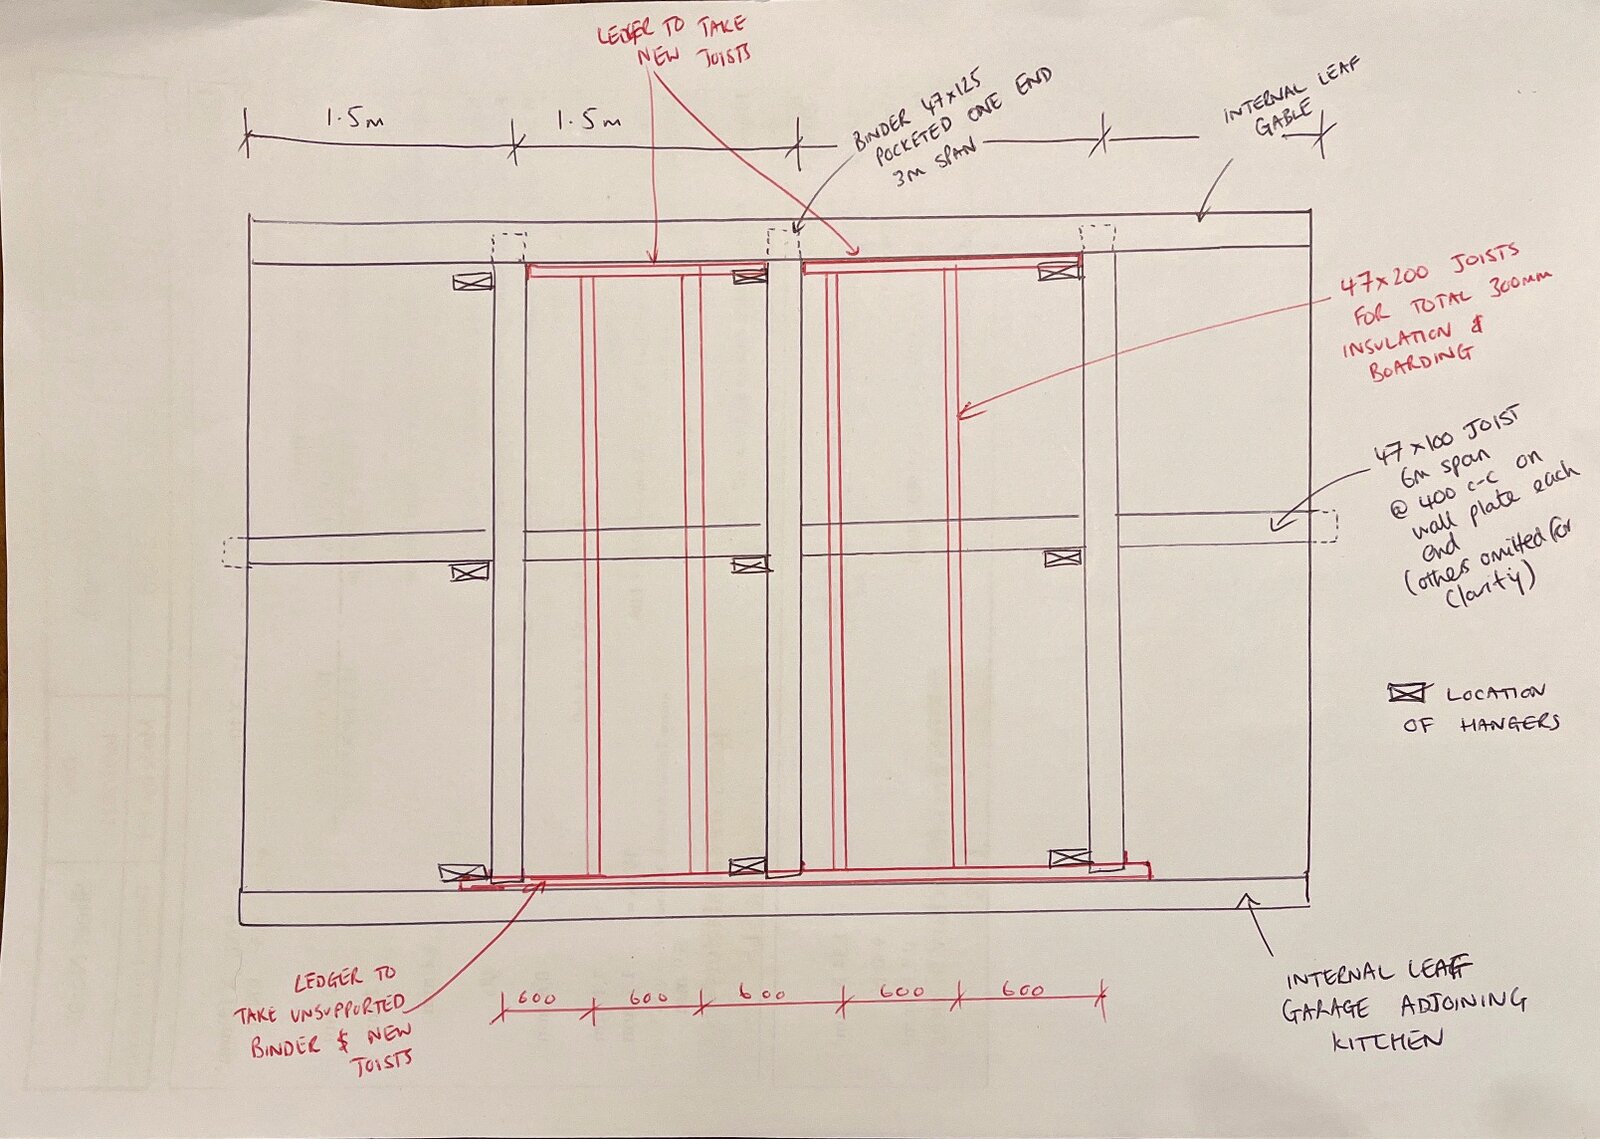 LEDGER TO TAKE
NEW JOISTS
1.5m
1.5m
BINDER 47x125
POCKETED ONE END
3m SPAN
INTERNAL LEAF
GABLE
47x200 JOISTS
FOR TOTAL 300mm
INSULATION &
BOARDING
47x100 JOIST
6m span
@ 400 c-c on
wall plate each
end
(others omitted for
clarity)
LOCATION
OF HANGERS
LEDGER TO
TAKE UNSUPPORTED
BINDER & NEW
JOISTS
600
600
600
600
600
INTERNAL LEAF
GARAGE ADJOINING
KITCHEN